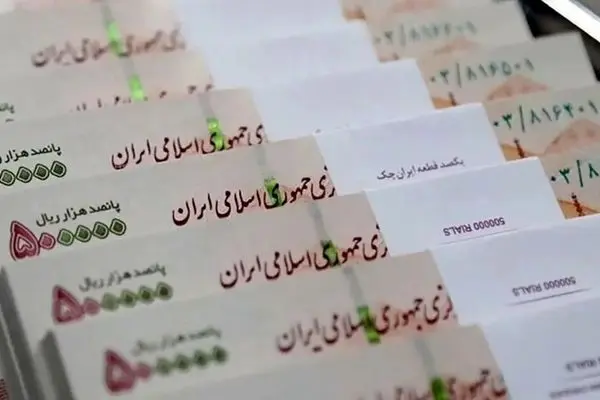 جمهوری اسلامی ایران
۰۳/۸۱۶۵۰۱
پانصد هزار ریال
جمهوری اسلامی ایران
۰۳/۸۱۶۴۰۱
یکصد قطعه ایران چک
پانصد هزار ریال
۵۰۰۰۰۰
زی جمهوری اسلامی ایران
۰۳/۸
500000 RIALS
پانصد هزار ریال
۵۰۰۰۰۰
زی جمهوری اسلامی ایران
500000 RIALS
پانصد هزار ریال
۵۰۰۰۰۰
زی جمهوری اسلامی ایران